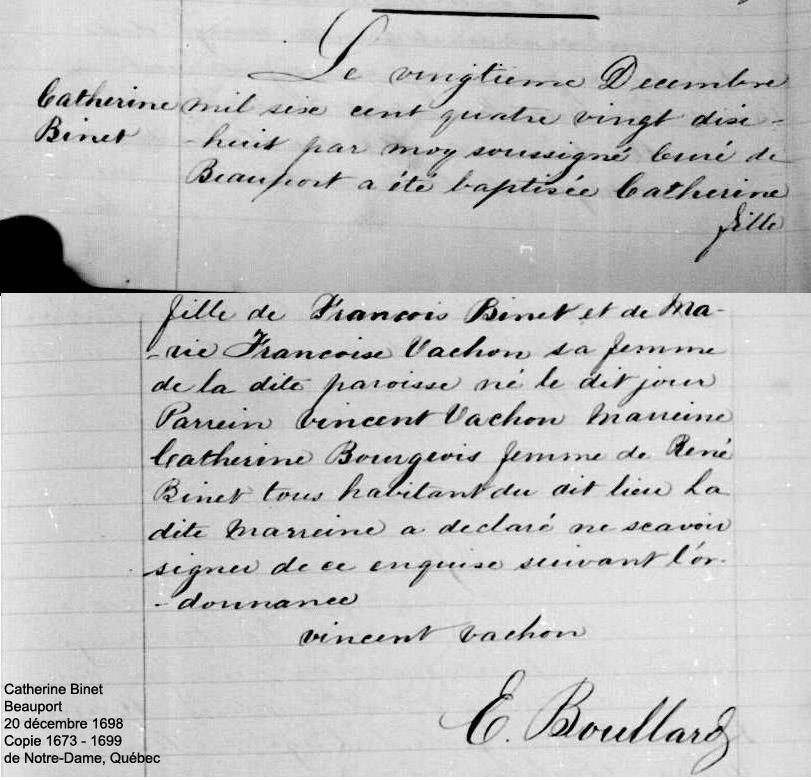 Le vingtieme Decembre
Catherine
Binet
mil six cent quatre vingt dixe -
- huit par moy soussigné Curé de
Beauport a été baptisée Catherine
fille
fille de Francois Binet et de Ma-
- rie Francoise Vachon sa femme
de la dite paroisse né le dit jour
Parrein vincent Vachon Marreine
Catherine Bourgeois femme de René
Binet tous habitant du dit lieu La
dite Marreine a declaré ne scavoir
signer de ce enquise suivant l'or-
- donnance
vincent Vachon
E. Boullard
Catherine Binet
Beauport
20 décembre 1698
Copie 1673 - 1699
de Notre-Dame, Québec